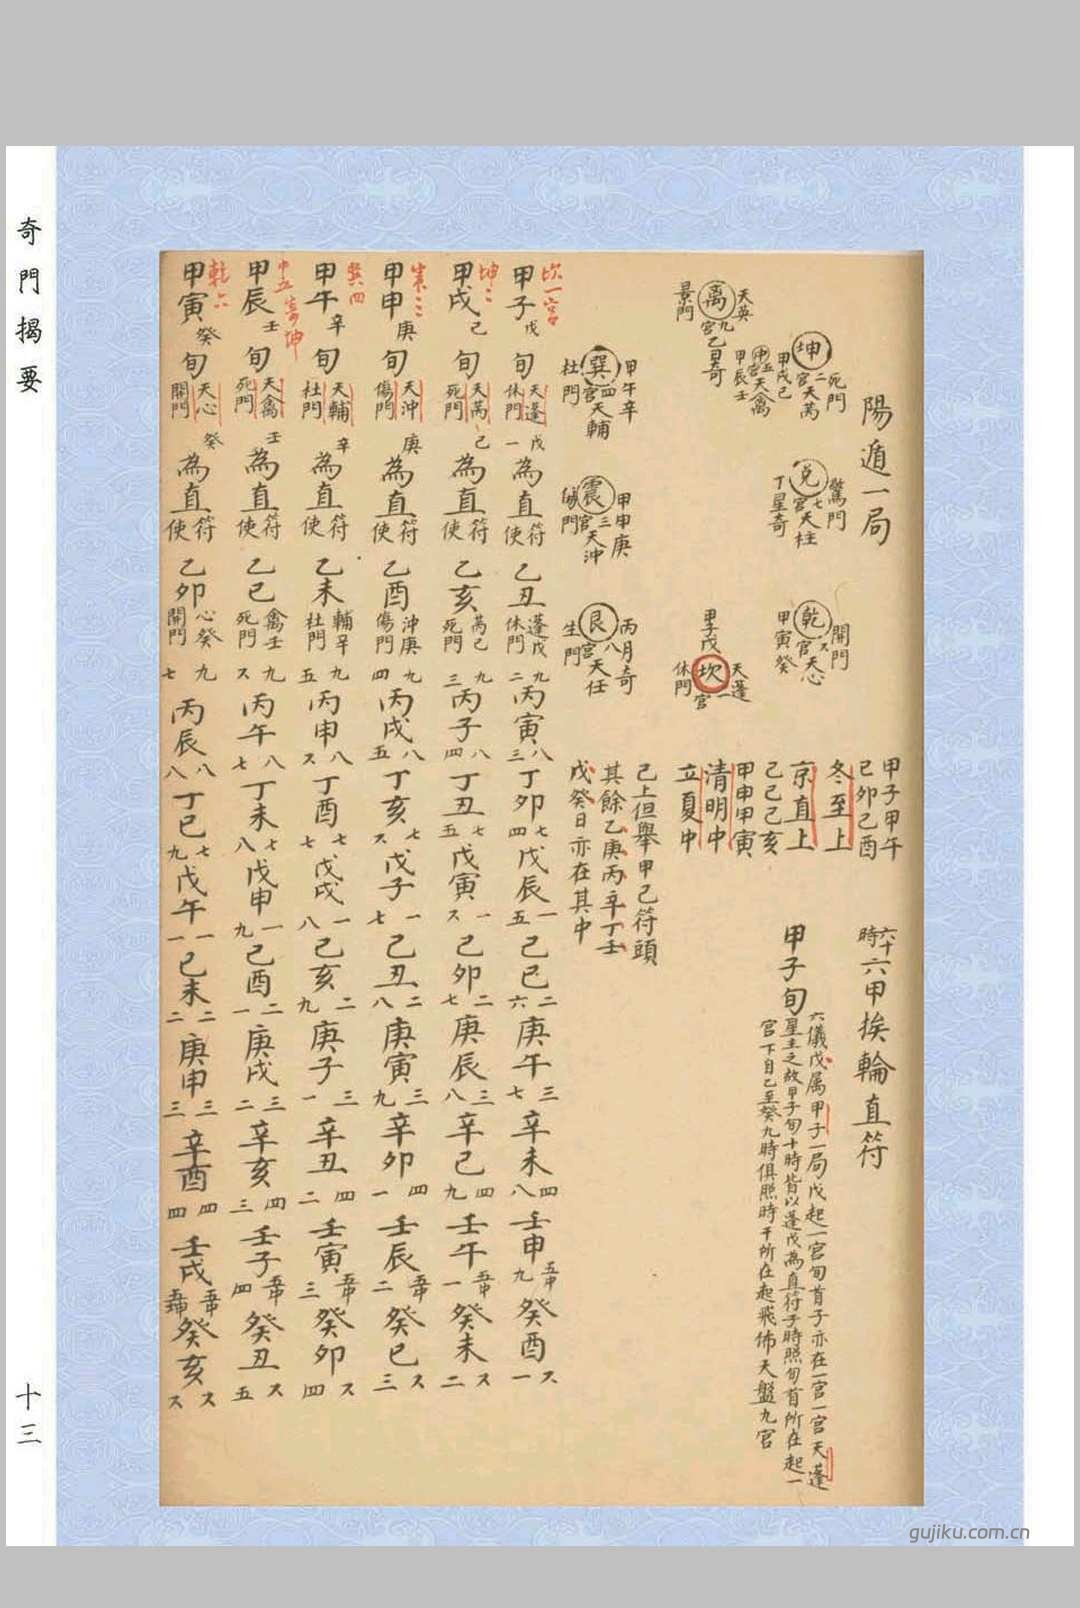 奇門揭要
十三
陽遁一局
離九宮 天英 景門 乙日奇
坤二宮 死門 天芮 甲戌己
中五宮 天禽 甲辰壬
巽四宮 甲午辛 天輔 杜門
兌七宮 驚門 天柱 丁星奇
震三宮 甲申庚 天沖 傷門
乾六宮 開門 天心 甲寅癸
坎一宮 甲子戊 天蓬 休門
艮八宮 丙月奇 天任 生門
甲子甲午
己卯己酉
冬至上
京直上
己巳己亥
甲申甲寅
清明中
立夏中
已上但舉甲己符頭
其餘乙庚丙辛丁壬
戊癸日亦在其中
六十時六甲挨輪直符
甲子旬
六儀戊属甲子一局戊起一宮旬首子亦在一宮一宮天蓬
星主之故甲子旬十時皆以蓬戊為直符子時照旬首所在起一
宮下自乙至癸九時俱照時干所在起飛佈天盤九宮
坎一宮
甲子戊旬 天蓬休門 戊一 為直符使 乙丑 蓬戊休門 九二 丙寅 八三 丁卯 七四 戊辰 一五 己巳 二六 庚午 三七 辛未 四八 壬申 五中九 癸酉 六一
坤二
甲戌己旬 天芮死門 己 為直符使 乙亥 芮己死門 九三 丙子 八四 丁丑 七五 戊寅 一六 己卯 二七 庚辰 三八 辛巳 四九 壬午 五中一 癸未 六二
震三
甲申庚旬 天沖傷門 庚 為直符使 乙酉 沖庚傷門 九四 丙戌 八五 丁亥 七六 戊子 一七 己丑 二八 庚寅 三九 辛卯 四一 壬辰 五中二 癸巳 六三
巽四
甲午辛旬 天輔杜門 辛 為直符使 乙未 輔辛杜門 九五 丙申 八六 丁酉 七七 戊戌 一八 己亥 二九 庚子 三一 辛丑 四二 壬寅 五中三 癸卯 六四
中五寄坤
甲辰壬旬 天禽死門 壬 為直符使 乙巳 禽壬死門 九六 丙午 八七 丁未 七八 戊申 一九 己酉 二一 庚戌 三二 辛亥 四三 壬子 五中四 癸丑 六五
乾六
甲寅癸旬 天心開門 癸 為直符使 乙卯 心癸開門 九七 丙辰 八八 丁巳 七九 戊午 一一 己未 二二 庚申 三三 辛酉 四四 壬戌 五中五中 癸亥 六六
gujiku.com.cn